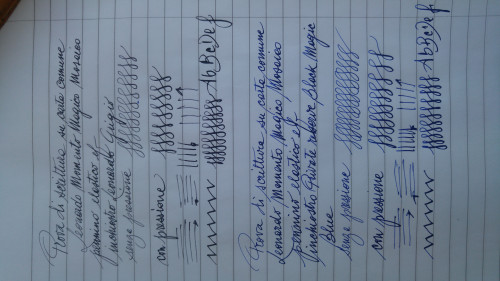 Prova di scrittura su carta comune
Leonardo Momento Magico Mosaico
pennino elastico ef
inchiostro Leonardo
senza pressione
con pressione
AbBcDef
Prova di scrittura su carta comune
Leonardo Momento Magico Mosaico
pennino elastico ef,
inchiostro Private reserve black Magic
Blue
senza pressione
con pressione
AbBcDef